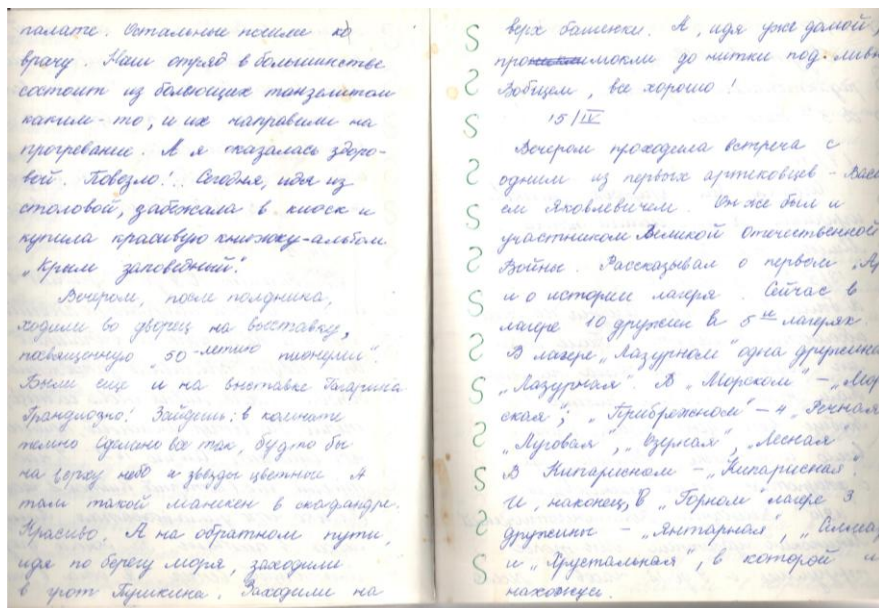 палате. Остальные пошли ко
врачу. Наш отряд в большинстве
состоит из болеющих танзелитом
каким-то, и их направили на
прогревание. А я оказалась здоро-
вой. Повезло!.. Сегодня, идя из
столовой, забежала в киоск и
купила красивую книжку-альбом
„Крым заповедный".
Вечером, после полдника,
ходили во дворец на выставку,
посвященную "50-летию пионерии".
Были еще и на выставке Гагарина
Грандиозно! Зайдешь: в комнате
темно сделано все так, будто бы
на верху небо и звезды цветные А
там такой маникен в скафандре.
Красиво. А на обратном пути,
идя по берегу моря, заходили
в грот Пушкина. Заходили на
верх башенки. А, идя уже домой,
промокли до нитки под
Вобщем, все хорошо!
15/IV
Вечером проходила встреча с
одним из первых артековцев -
ем Яковлевичем. Он же был и
участником Великой отечественной
Войны. Рассказывал о первом
и о истории лагеря. Сейчас в
лагере 10 дружин в 5ти лагерях
В лагере „Лазурном" одна дружина
„Лазурная". В „Морском" – „Мор
ская"; „Прибрежном" – 4 „Речная
„Луговая", „Озерная", „Лесная
В Кипарисном – „Кипарисная".
И, наконец, в „Горном" лагере 3
дружины – „Янтарная",
и „Хрустальная", в которой и
нахожусь.